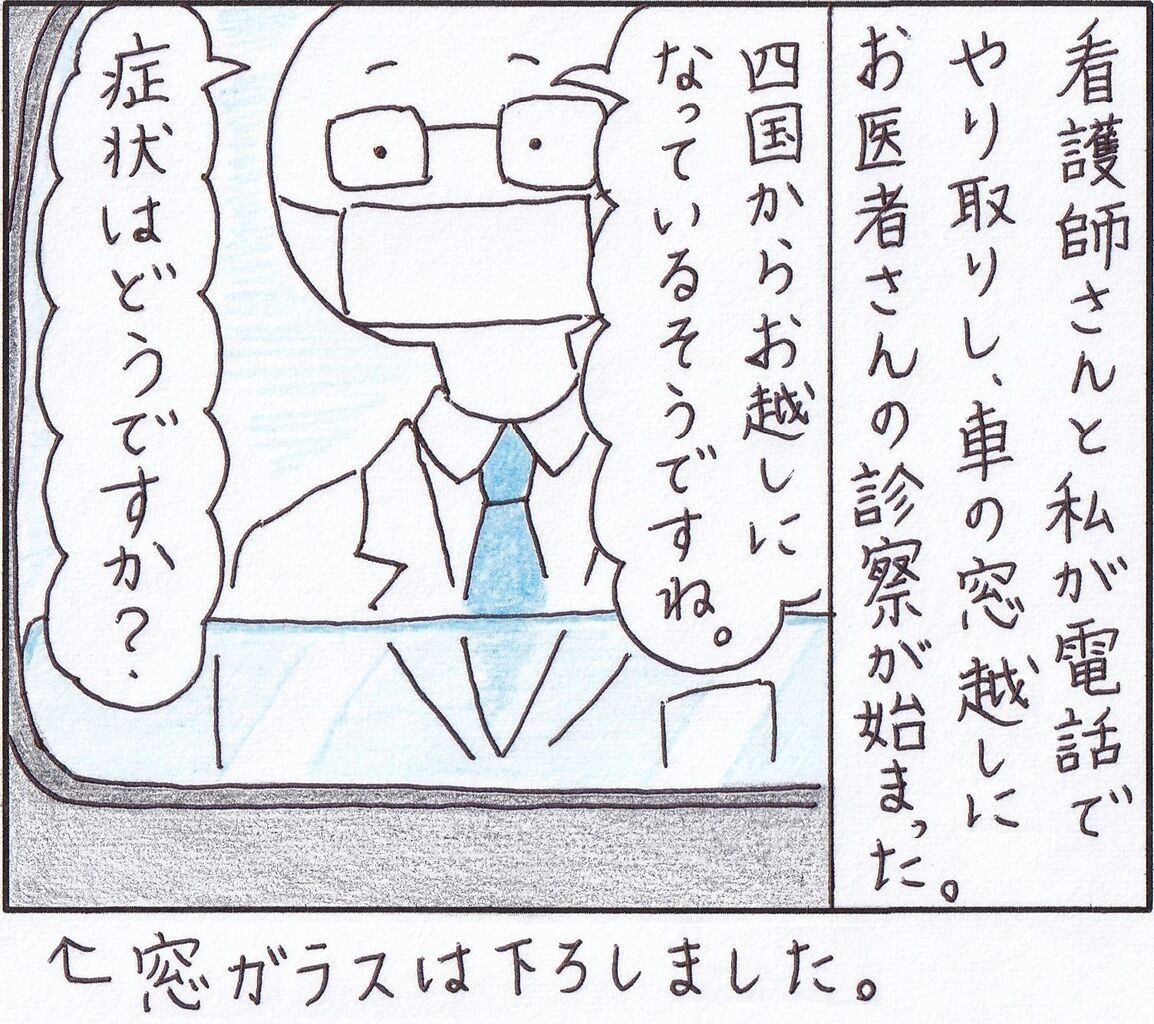 看護師さんと私が電話で
やり取りし、車の窓越しに
お医者さんの診察が始まった。
四国からお越しに
なっているそうですね。
症状はどうですか？
↑窓ガラスは下ろしました。